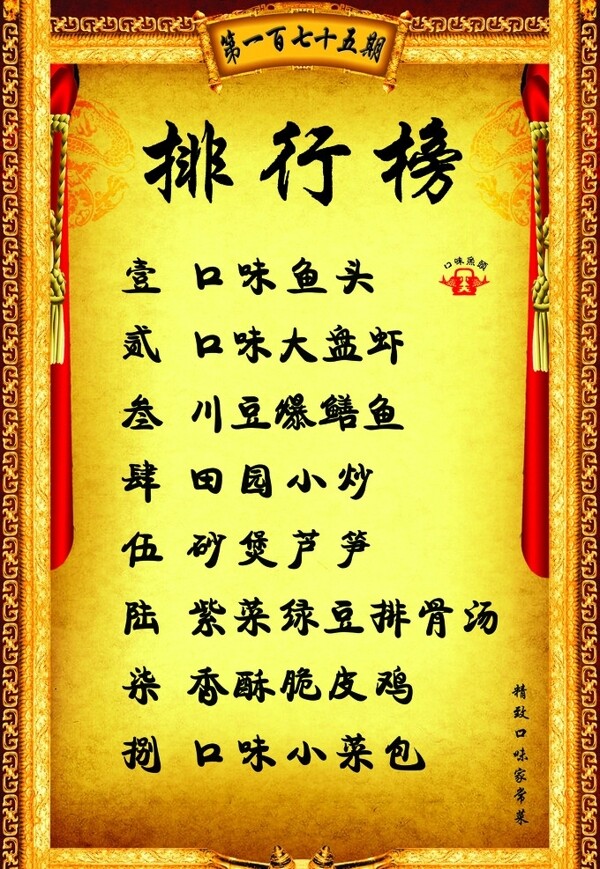 第一百七十五期
排行榜
口味魚頭
壹 口味鱼头
贰 口味大盘虾
叁 川豆爆鳝鱼
肆 田园小炒
伍 砂煲芦笋
陆 紫菜绿豆排骨汤
柒 香酥脆皮鸡
捌 口味小菜包
精致口味家常菜